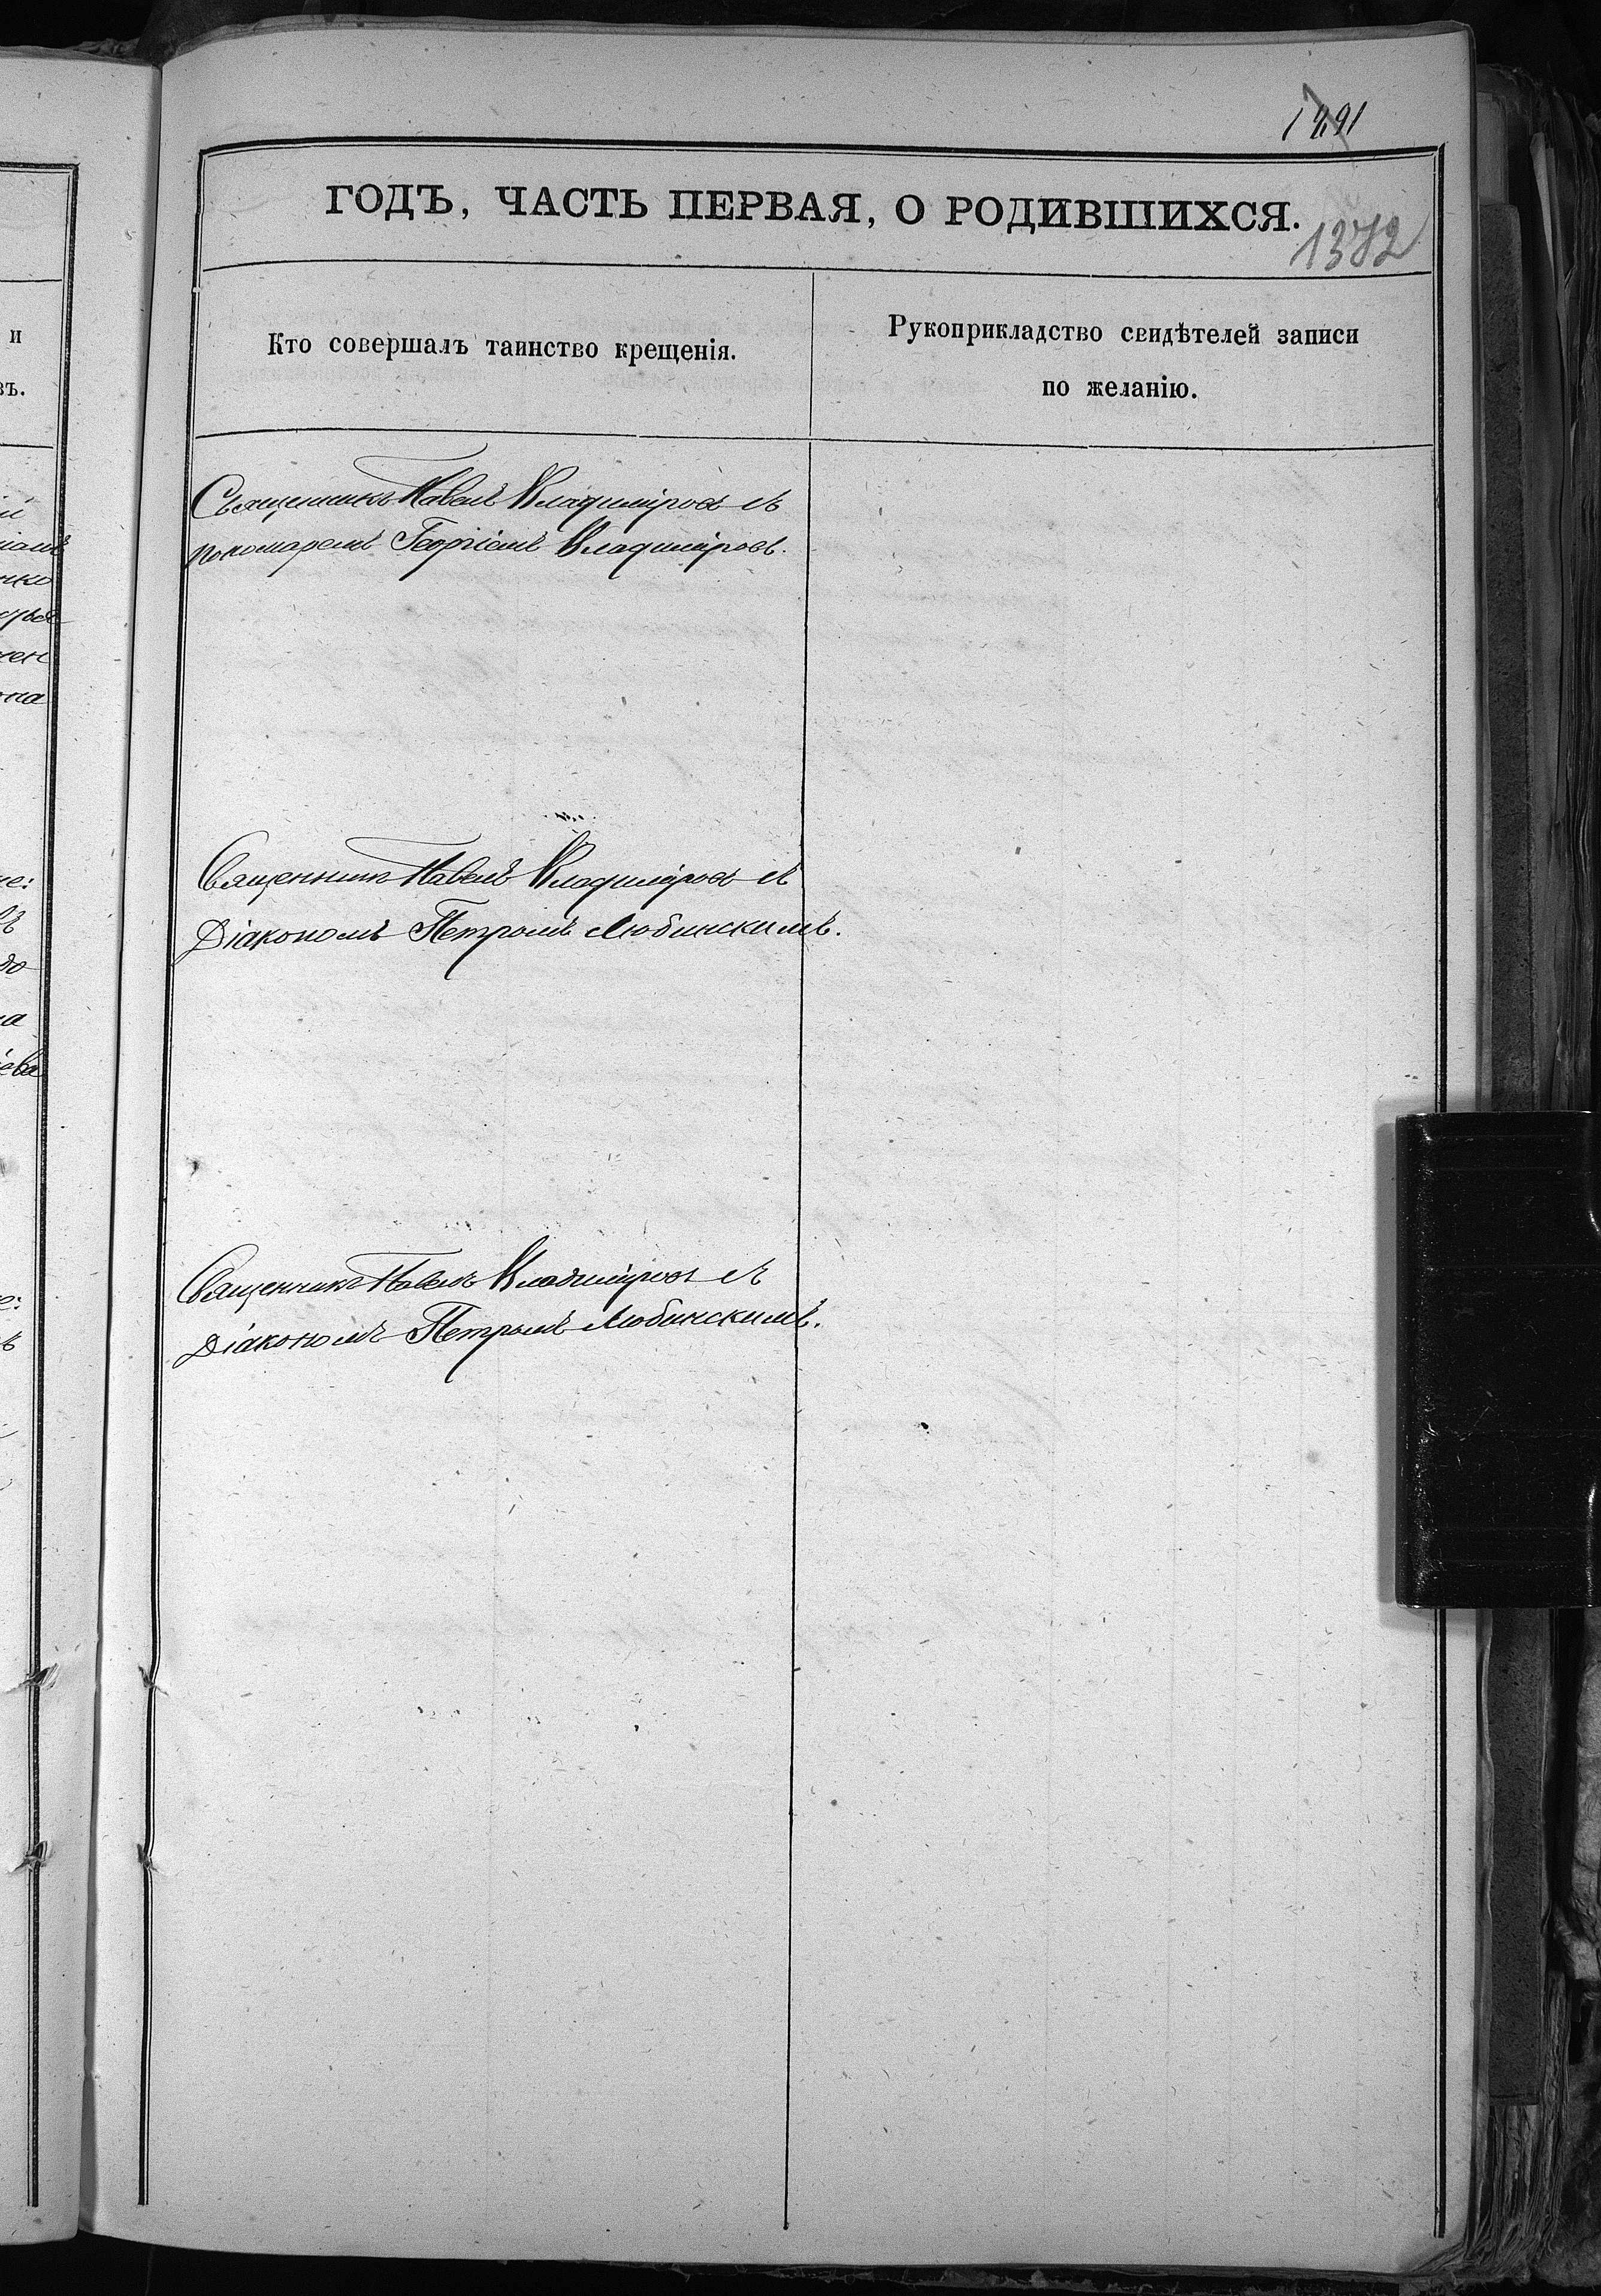 1291
ГОДЪ, ЧАСТЬ ПЕРВАЯ, О РОДИВШИХСЯ.
1372
Кто совершалъ таинство крещенія.
Рукоприкладство свидѣтелей записи
по желанію.
Священникъ Павелъ Владиміровъ съ
пономаремъ Георгіемъ Владиміров.
Священникъ Павелъ Владиміровъ съ
Діакономъ Петромъ Любинскимъ.
Священникъ Павелъ Владиміровъ съ
Діакономъ Петромъ Любинскимъ.
и
въ.